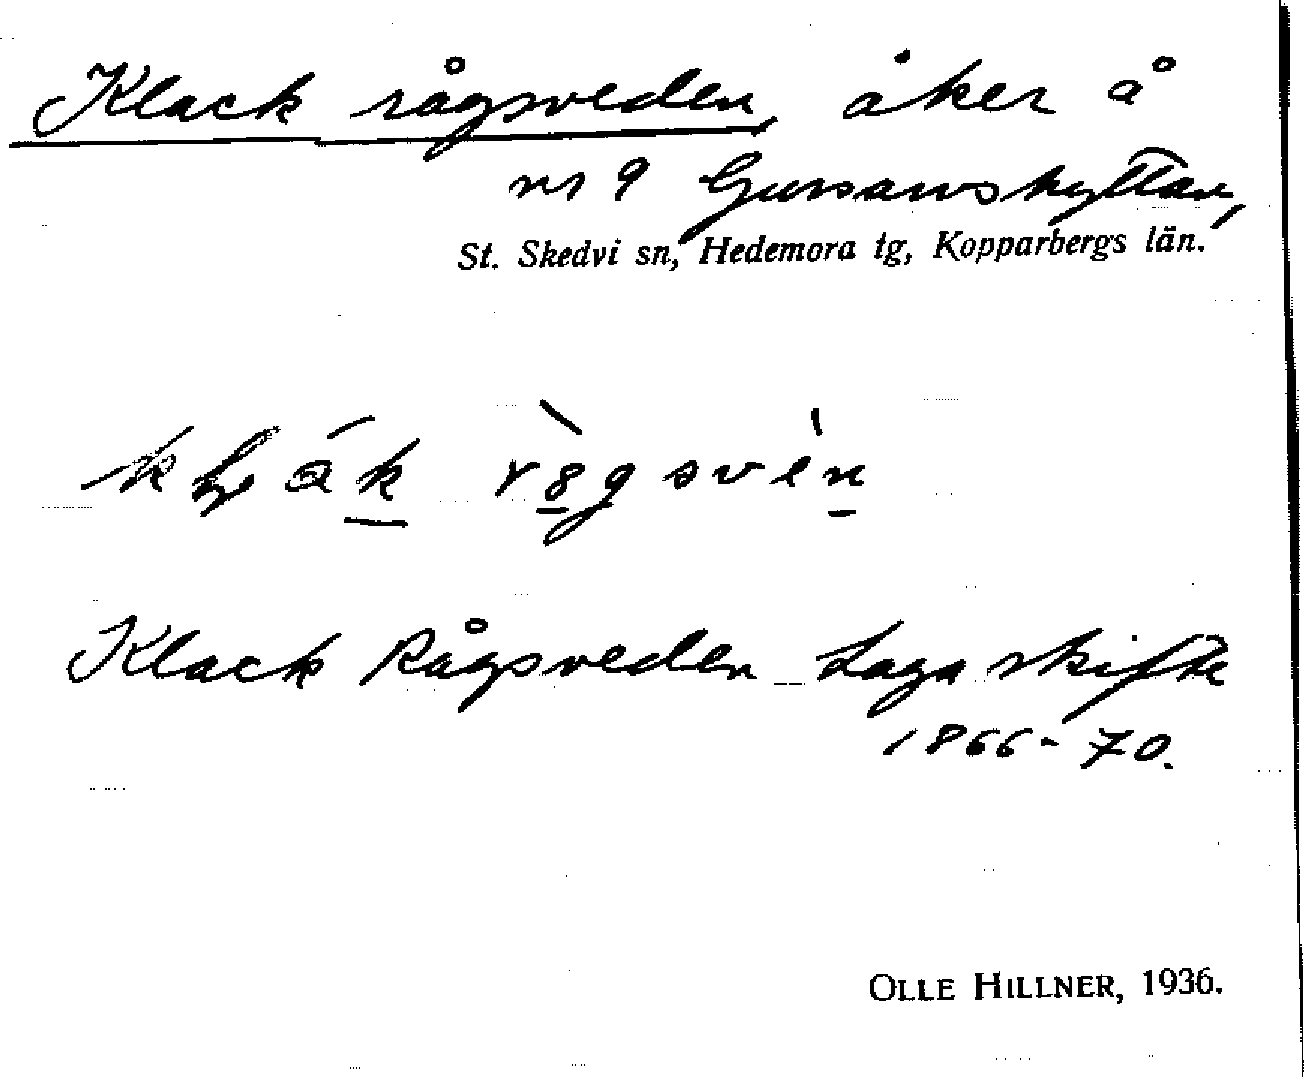 Klack rågsveden, åker å
nr 9 Gussarvshyttan,
St. Skedvi sn, Hedemora tg, Kopparbergs län.
Klack Rågsveden Laga skifte
1866-70.
OLLE HILLNER, 1936.